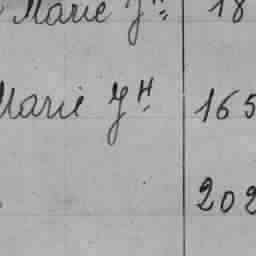 Marie J H 18
Marie J H 165
202